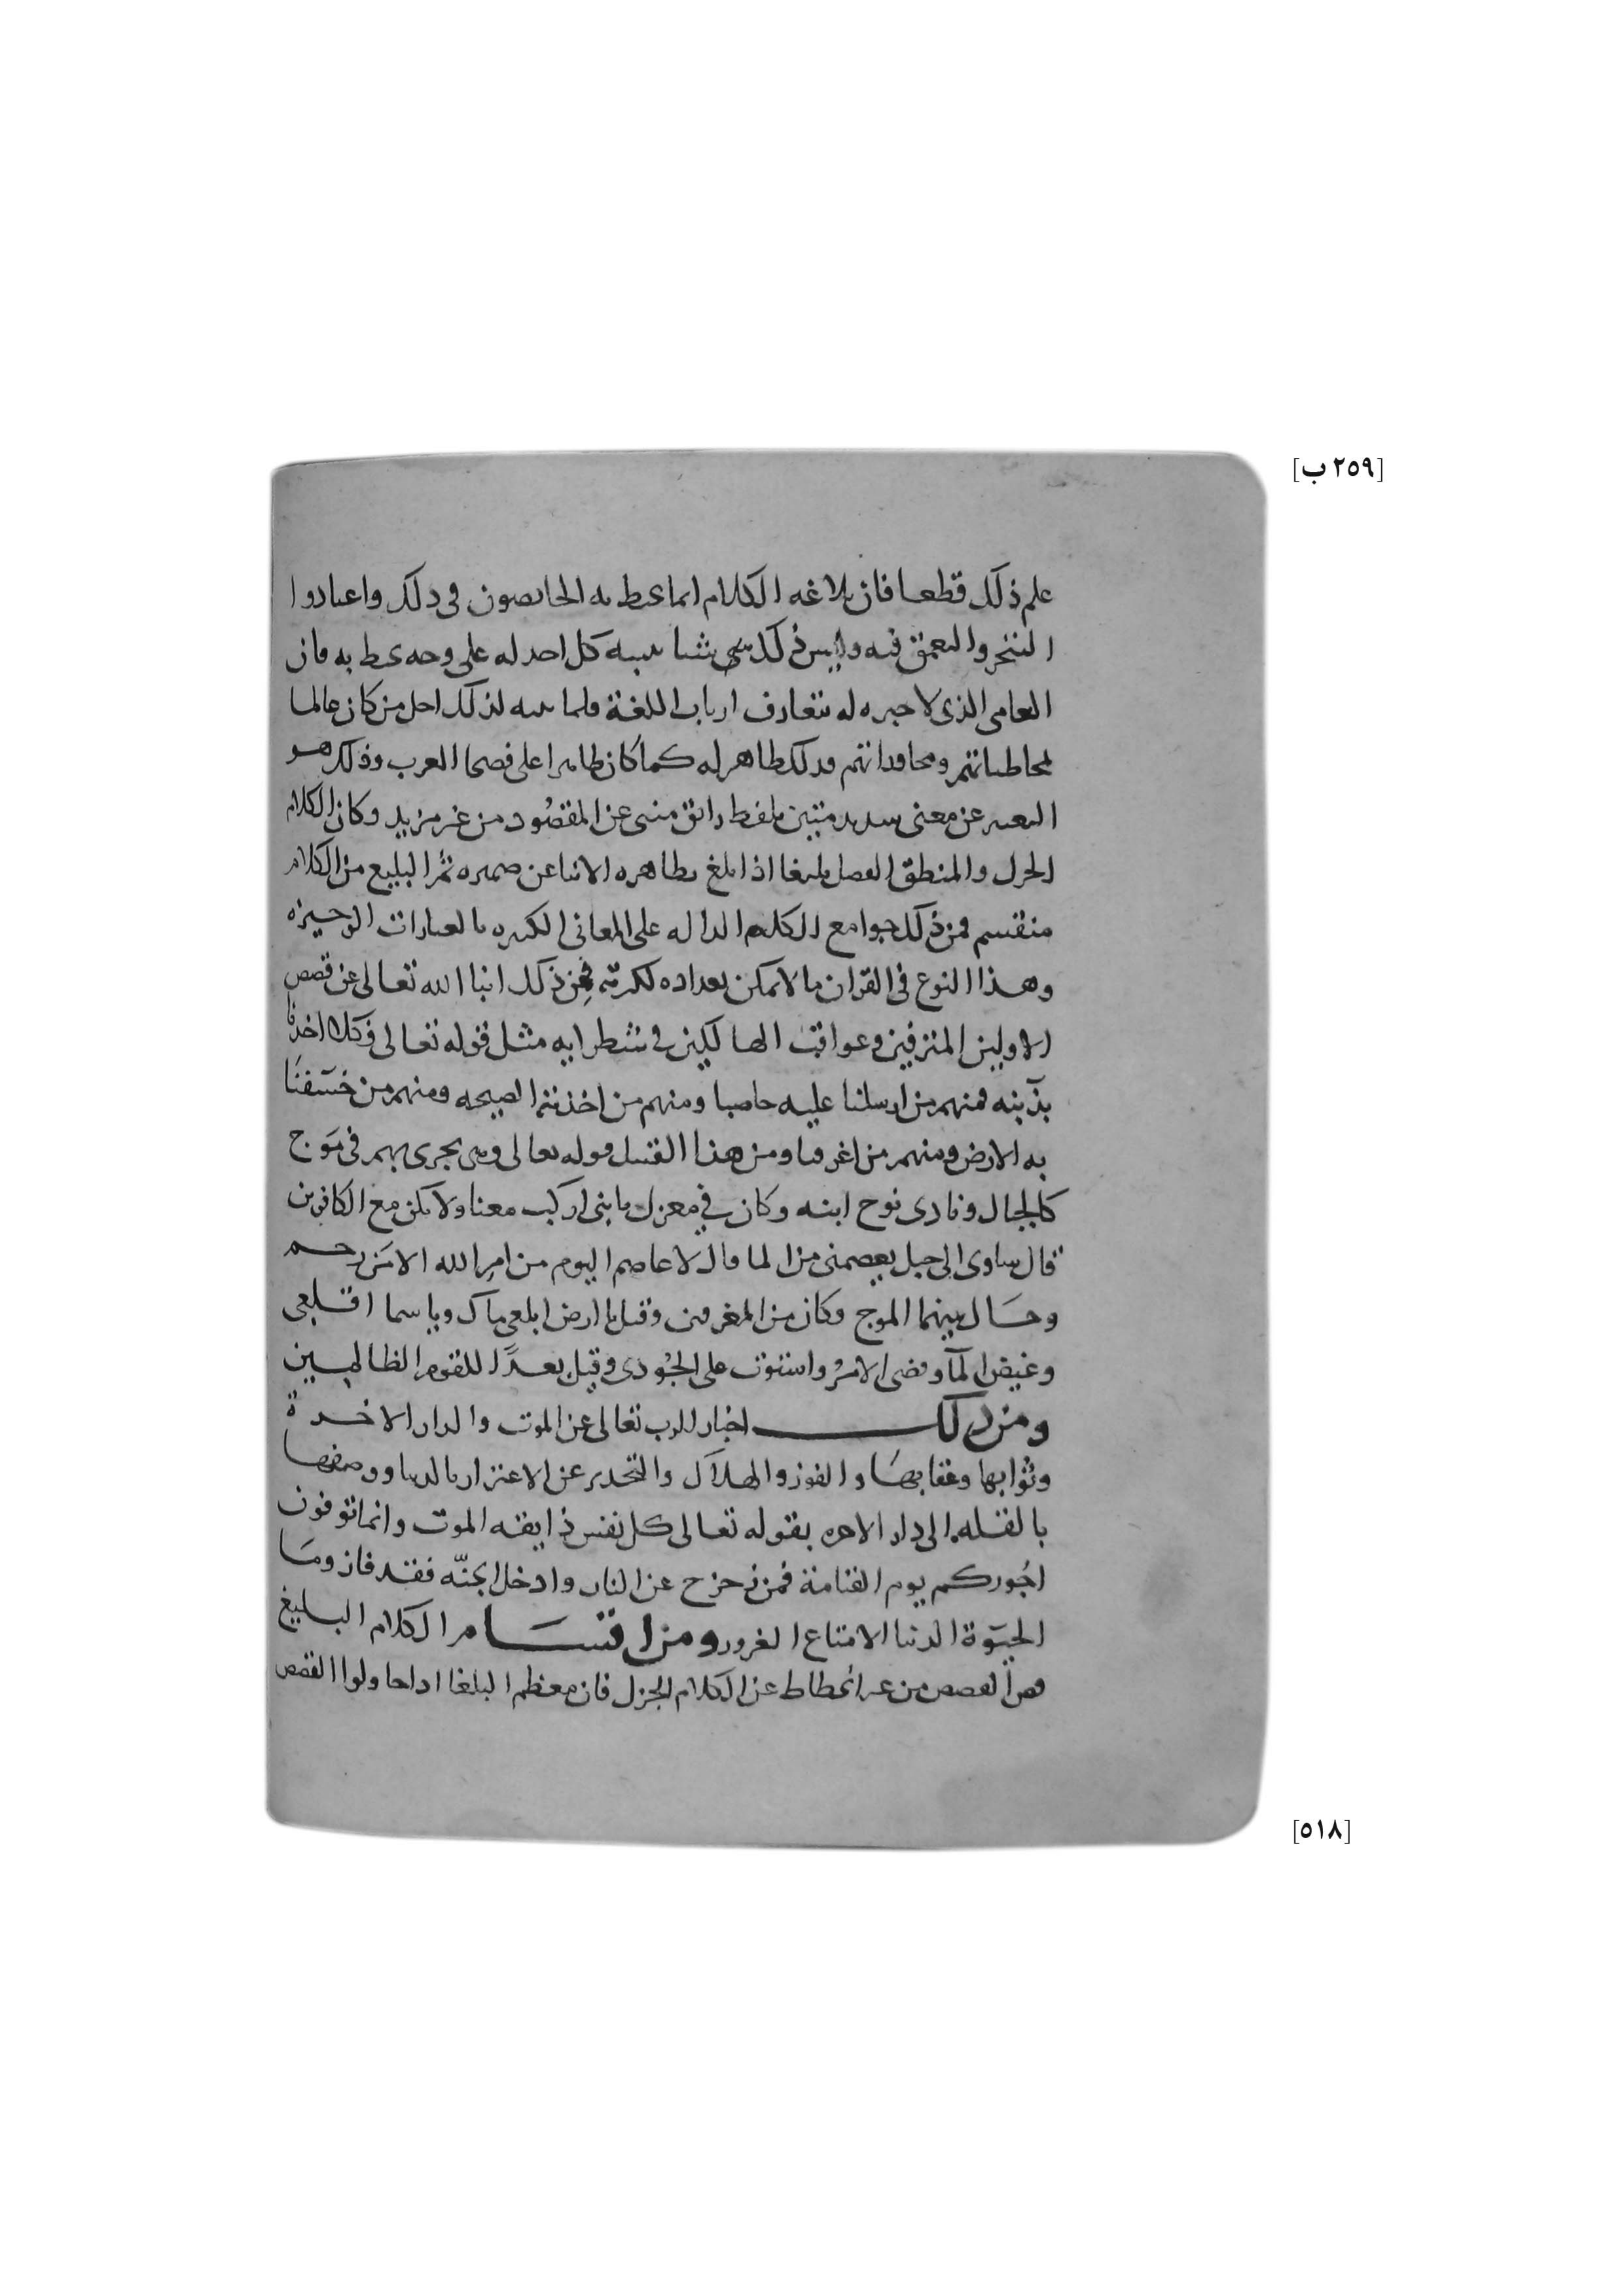 [٢٥٩ ب]
علم ذلك قطعا فان بلاغه الكلام انما يحيط به الخايصون في ذلك واعتادوا
التبحر والتعمق فيه وليس ذلك شي يتنبه كل احد له على وجه يحيط به فان
العامي الذي لا خبره له بتعارف ارباب اللغة فلما ينبه لذلك اجل من كان عالما
بمخاطباتهم ومحاوراتهم فذلك ظاهر له كما كان ظاهرا على فصحا العرب وذلك هو
التعبير عن معنى سديد متين بلفظ رائق منبي عن المقصود من غير مزيد وكان الكلام
الجزل والمنطق الفصل بليغا اذا بلغ بظاهره الانبا عن ضميره ثم البليغ من الكلام
منقسم فمن ذلك جوامع الكلم الداله على المعاني الكثيره بالعبارات الوجيزه
وهذا النوع في القران ما لا يمكن تعداده لكثرته فمن ذلك انبا الله تعالى عن قصص
الاولين المترفين وعواقب الهالكين في شطر ايه مثل قوله تعالى فكلا اخذنا
بذنبه فمنهم من ارسلنا عليه حاصبا ومنهم من اخذته الصيحه ومنهم من خسفنا
به الارض ومنهم من اغرقنا ومن هذا القبيل قوله تعالى وهي تجري بهم في موج
كالجبال ونادى نوح ابنه وكان في معزل يا بني اركب معنا ولا تكن مع الكافرين
قال ساوى الى جبل يعصمني من الما قال لا عاصم اليوم من امر الله الا من رحم
وحال بينهما الموج وكان من المغرقين وقيل يا ارض ابلعي ماك ويا سما اقلعي
وغيض المآ وقضى الامرُ واستوت على الجُودي وقيل بعدًا للقوم الظالمين
ومن ذلك اخبار الرب تعالى عن الموت والدار الاخرة
وثوابها وعقابها والفوز والهلاك والتحدير عن الاغترار بالدنيا ووصفها
بالقله الى دار الاخره بقوله تعالى كل نفس ذايقه الموت وانما توفون
اجُوركم يوم القيامة فمن زحزح عن النار وادخل الجنّه فقد فاز ومَا
الحيَوة الدنيا الا متاع الغرور ومن اقسام الكلام البليغ
قص القصص من غير انحطاط عن الكلام الجزل فان معظم البلغا اذا حاولوا القصص
[٥١٨]